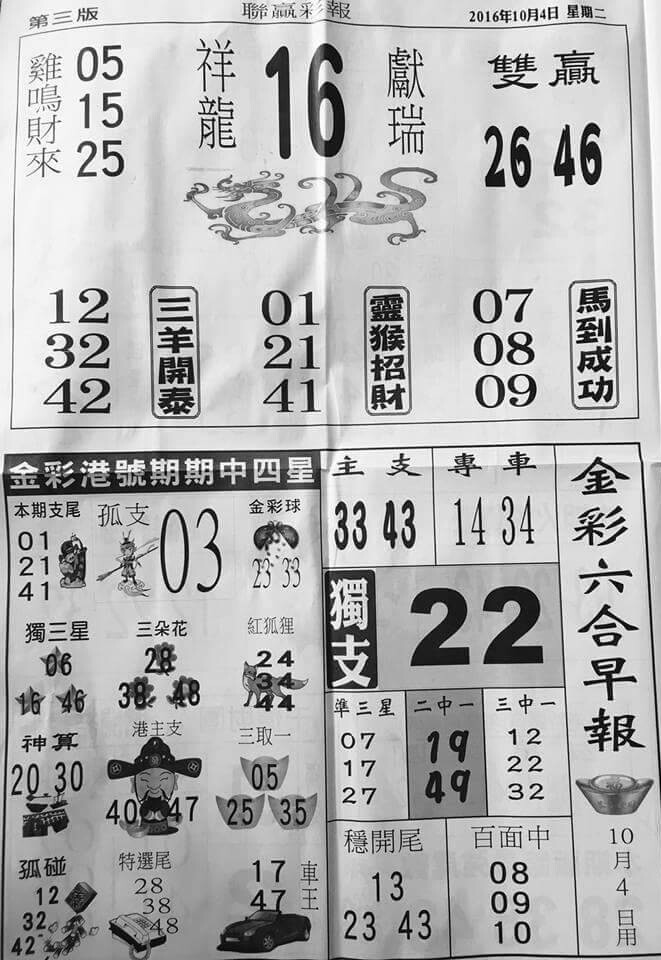 第三版
聯贏彩報
2016年10月4日 星期二
雞鳴財來
05
15
25
祥龍
16
獻瑞
雙贏
26 46
12
32
42
三羊開泰
01
21
41
靈猴招財
07
08
09
馬到成功
金彩港號期期中四星
本期支尾
01
21
41
孤支
03
金彩球
23 33
獨三星
06
16 46
三朵花
28
38 48
紅狐狸
24
34
44
神算
20 30
港主支
40 47
三取一
05
25 35
孤碰
12
32
42
特選尾
28
38
48
17
47
車王
主支
33 43
專車
14 34
獨支
22
準三星
07
17
27
二中一
19
49
三中一
12
22
32
穩開尾
13
23 43
百面中
08
09
10
金彩六合早報
10月4日用